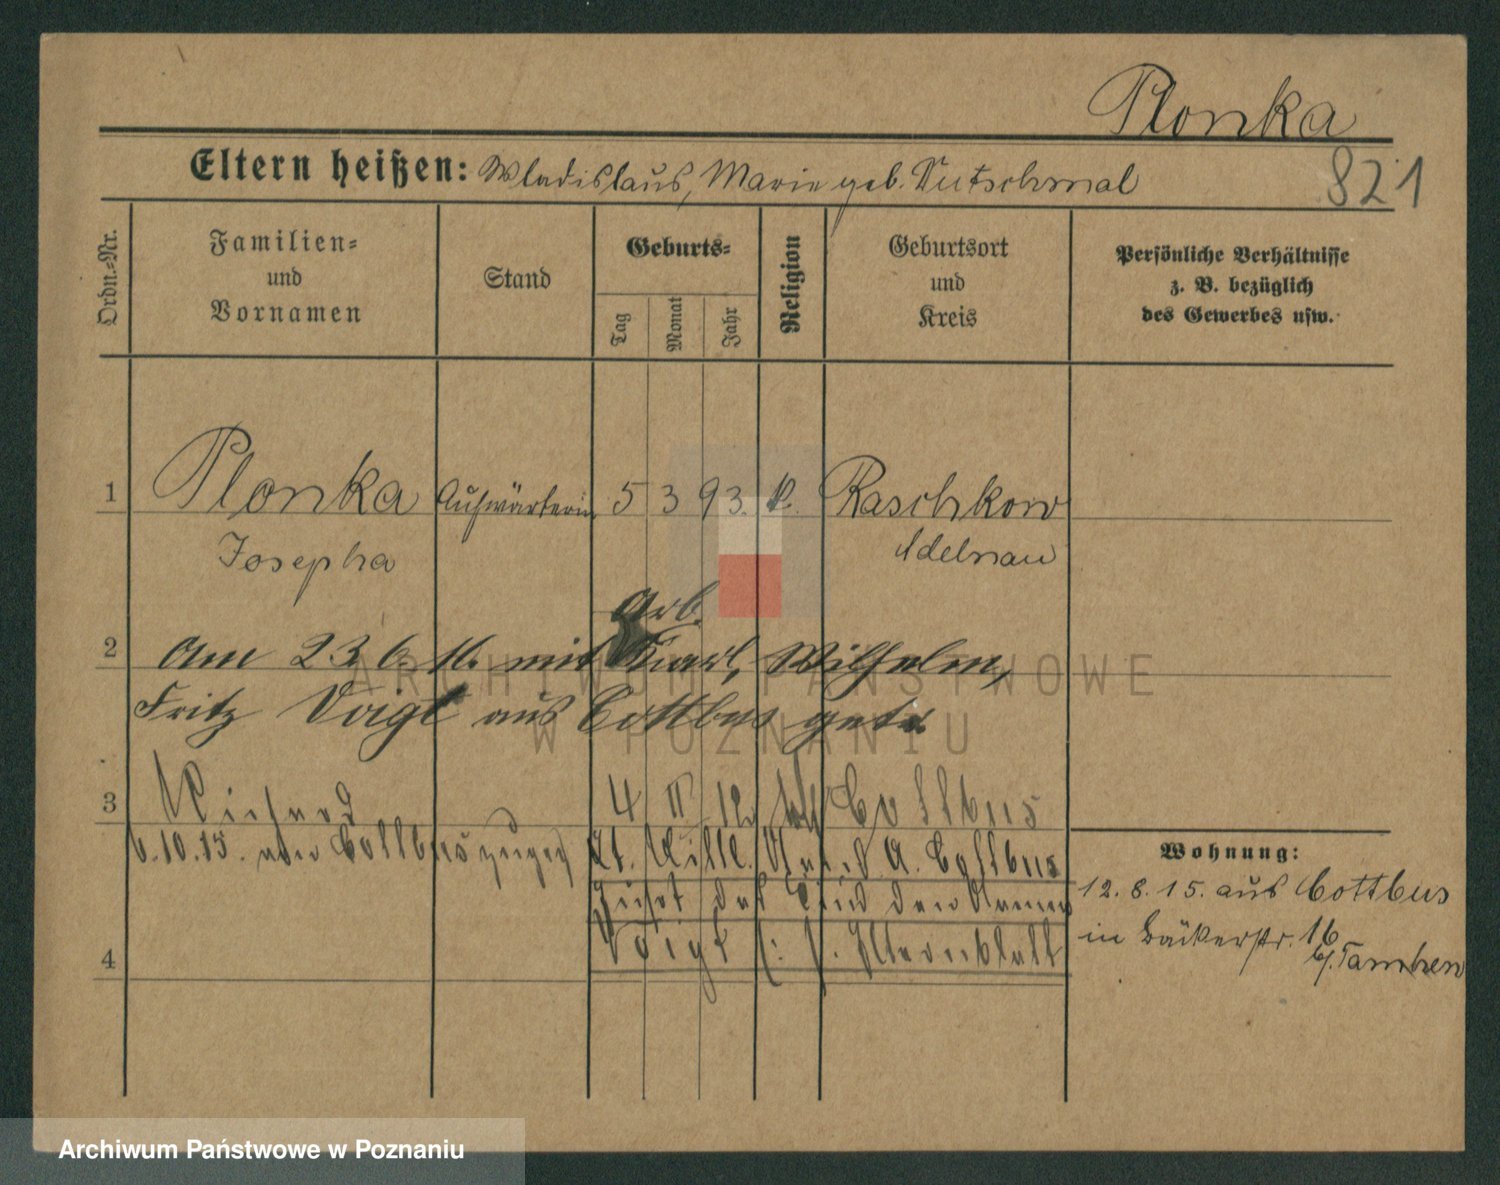 Plonka
821
Eltern heißen: Wladislaus, Marie geb. Vutschmal
Ordn.-Nr.
Familien-
und
Vornamen
Stand
Geburts-
Tag
Monat
Jahr
Religion
Geburtsort
und
Kreis
Persönliche Verhältnisse
z. B. bezüglich
des Gewerbes usw.
1
Plonka
Aufwärterin
5
3
93.
k.
Raschkow
Josepha
Adelnau
Arb.
2
Am 23.6.16. mit Karl, Wilhelm,
Fritz Voigt aus Cottbus getr.
3
Richard
4
II
12
Cottbus
6.10.15. von Cottbus zugez
Lt. Mitt. A. Cottbus
führt das Kind den Namen
Voigt (: s. Elternblatt
4
Wohnung:
12.8.15. aus Cottbus
in Bäckerstr. 16
b/.
ARCHIWUM PAŃSTWOWE
W POZNANIU
Archiwum Państwowe w Poznaniu